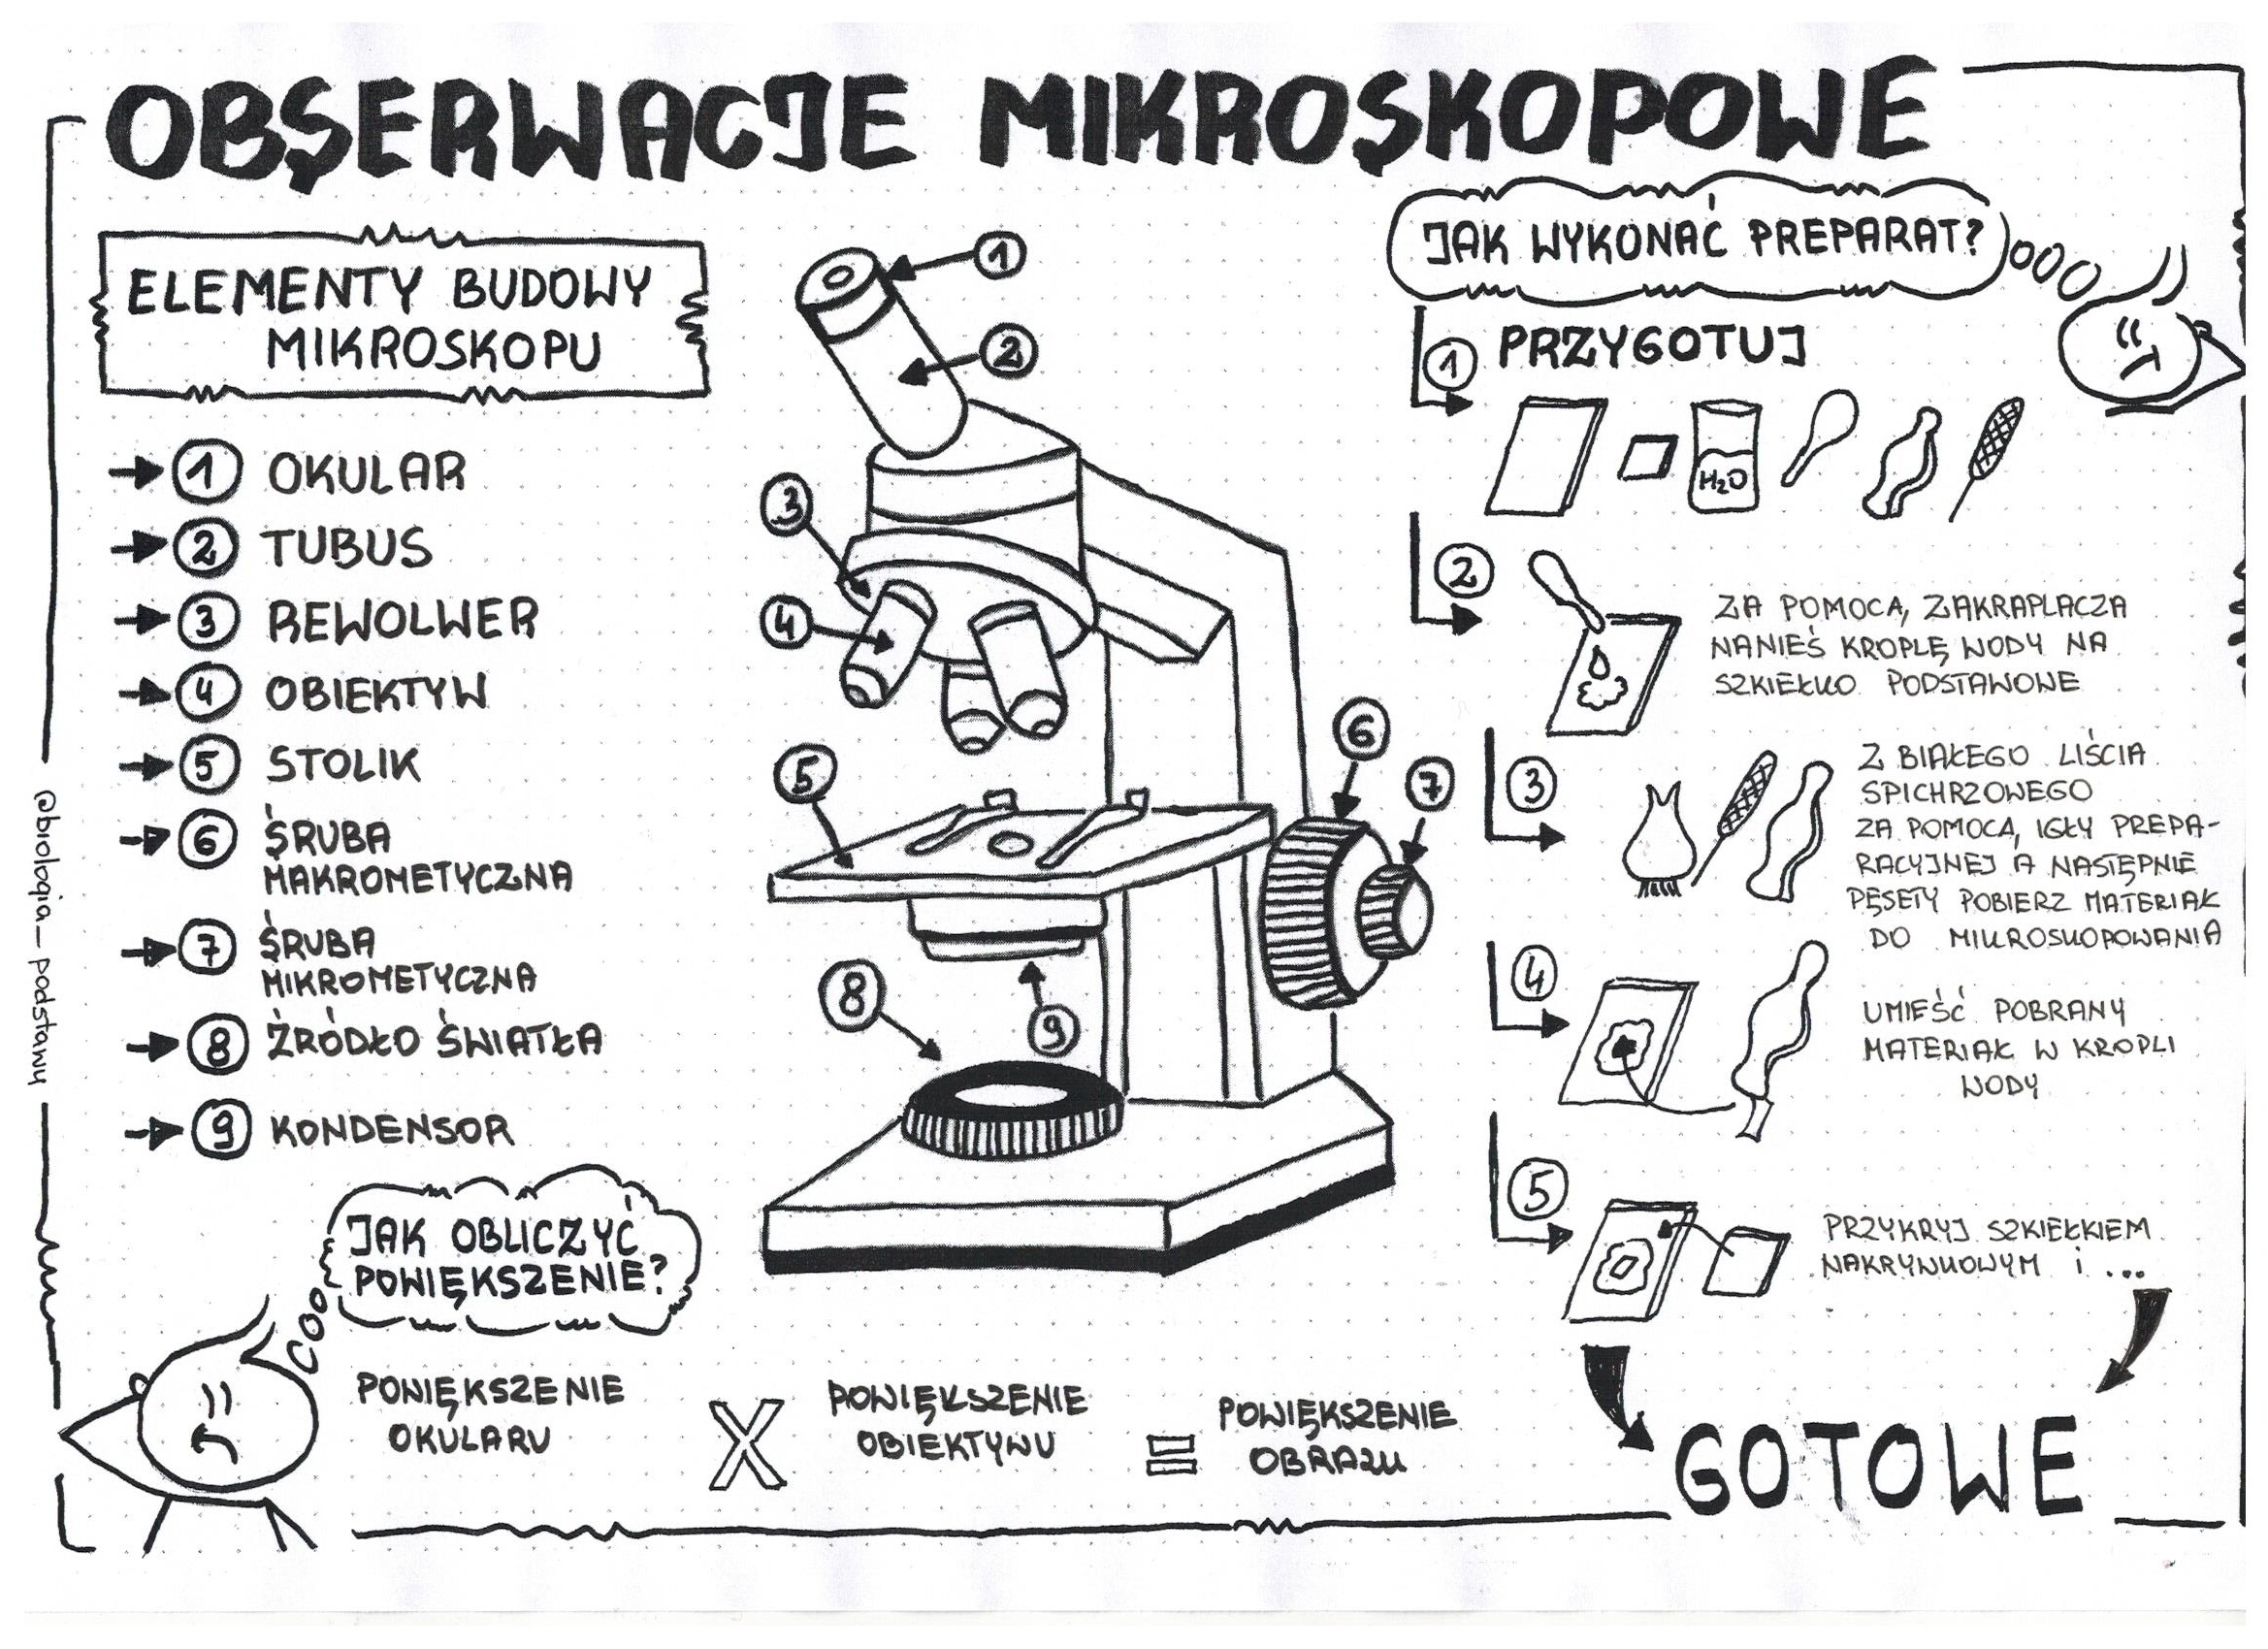 OBSERWACJE MIKROSKOPOWE
ELEMENTY BUDOWY
MIKROSKOPU
1 OKULAR
2 TUBUS
3 REWOLWER
4 OBIEKTYW
5 STOLIK
6 ŚRUBA
MAKROMETYCZNA
7 ŚRUBA
MIKROMETYCZNA
8 ŹRÓDŁO ŚWIATŁA
9 KONDENSOR
@biologia_podstawy
1
2
3
4
5
6
7
8
9
JAK OBLICZYĆ
POWIĘKSZENIE?
POWIĘKSZENIE
OKULARU
X
POWIĘKSZENIE
OBIEKTYWU
=
POWIĘKSZENIE
OBRAZU
JAK WYKONAĆ PREPARAT?
1 PRZYGOTUJ
H2O
2
ZA POMOCĄ ZAKRAPLACZA
NANIEŚ KROPLĘ WODY NA
SZKIEŁKO PODSTAWOWE
3
Z BIAŁEGO LIŚCIA
SPICHRZOWEGO
ZA POMOCĄ IGŁY PREPA-
RACYJNEJ A NASTĘPNIE
PĘSETY POBIERZ MATERIAŁ
DO MIKROSKOPOWANIA
4
UMIEŚĆ POBRANY
MATERIAŁ W KROPLI
WODY
5
PRZYKRYJ SZKIEŁKIEM
NAKRYWKOWYM i ...
GOTOWE